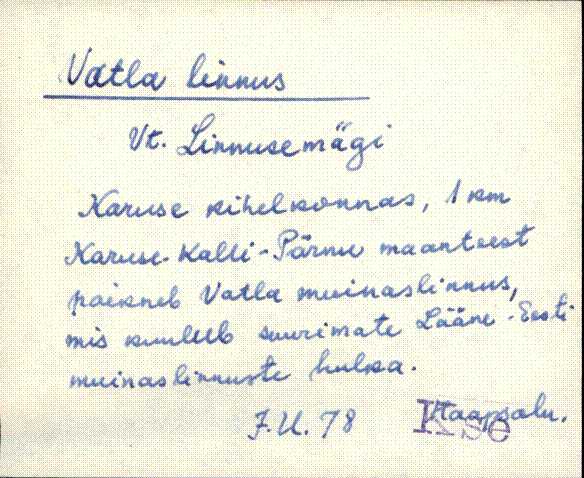 Vatla linnus
Vt. Linnusemägi
Karuse kihelkonnas, 1 km
Karuse-Kalli-Pärnu maanteest
paikneb Vatla muinaslinnus,
mis kuulub suurimate Lääne-Eesti
muinaslinnuste hulka.
J.U. 78 Haapsalu.
Kse